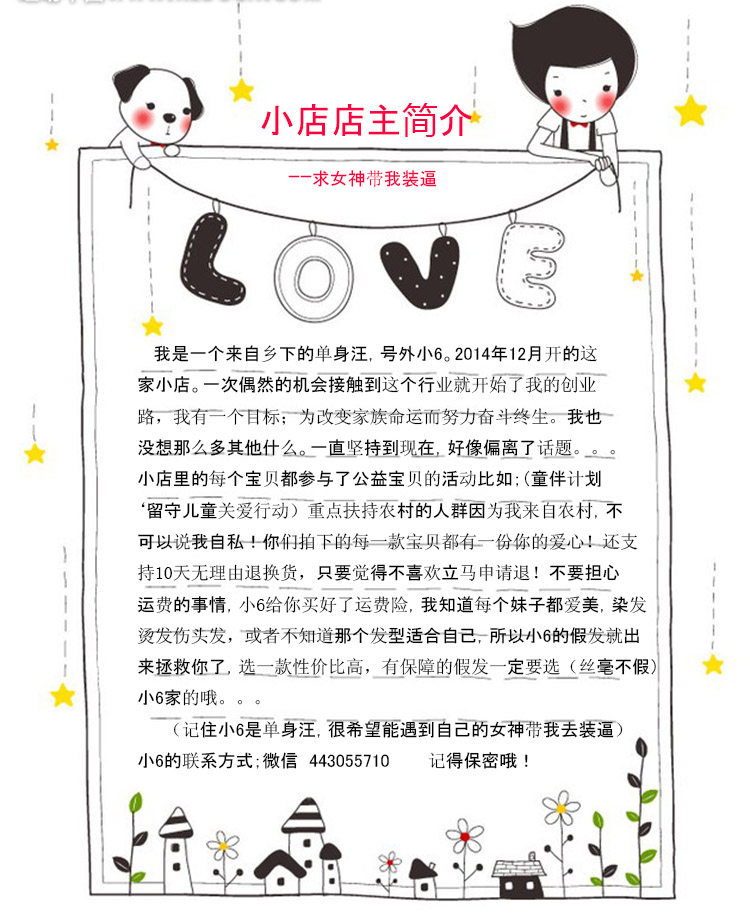 小店店主简介
--求女神带我装逼
LOVE
我是一个来自乡下的单身汪,号外小6。2014年12月开的这
家小店。一次偶然的机会接触到这个行业就开始了我的创业
路，我有一个目标；为改变家族命运而努力奋斗终生。我也
没想那么多其他什么。一直坚持到现在,好像偏离了话题。。。
小店里的每个宝贝都参与了公益宝贝的活动比如;(童伴计划
‘留守儿童关爱行动）重点扶持农村的人群因为我来自农村,不
可以说我自私！你们拍下的每一款宝贝都有一份你的爱心！还支
持10天无理由退换货，只要觉得不喜欢立马申请退！不要担心
运费的事情,小6给你买好了运费险,我知道每个妹子都爱美,染发
烫发伤头发，或者不知道那个发型适合自己,所以小6的假发就出
来拯救你了,选一款性价比高，有保障的假发一定要选（丝毫不假）
小6家的哦。。。
（记住小6是单身汪,很希望能遇到自己的女神带我去装逼）
小6的联系方式;微信 443055710 记得保密哦！